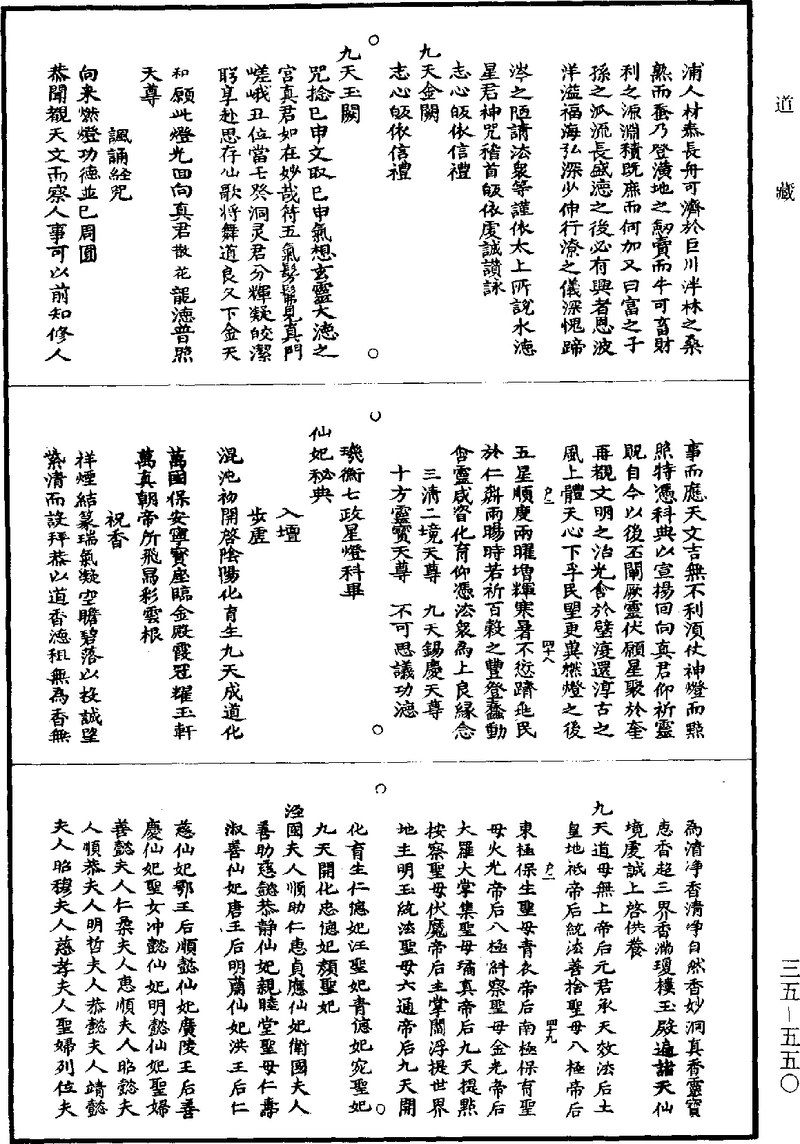 道藏
浦人材叅長舟可濟於巨川泮林之桑
熟而蚕乃登潢地之劒賣而牛可畜財
利之源淵積既庶而何加又曰富之子
孫之泒流長盛德之後必有興者恩波
洋溢福海弘深少伸行潦之儀深愧蹄
涔之陋請法衆等謹依太上所說水德
星君神咒稽首皈依虔誠讚詠
志心皈依信禮
九天金闕
志心皈依信禮
九天玉闕
咒捻已申文取已申氣想玄靈大德之
宫真君如在妙哉符五氣髣髴見真門
嵯峨丑位當壬癸洞灵君分輝凝皎潔
貂享赴思存仙歌将舞道良久下金天
和願此燈光回向真君散花龍德普照
天尊
諷誦経咒
向来燃燈功德並已周圓
恭聞觀天文而察人事可以前知修人
事而應天文吉無不利湏仗神燈而點
照特憑科典以宣揚回向真君仰祈靈
貺自今以後丕闡厥靈伏願星聚於奎
再觀文明之治光舍於壁復還淳古之
風上體天心下孚民望更兾燃燈之後
户二 四十八
五星順度兩曜増輝寒暑不愆躋兆民
於仁壽雨暘時若祈百穀之豐登蠢動
含靈咸資化育仰憑法衆爲上良縁念
三清二境天尊 九天錫慶天尊
十方靈寳天尊 不可思議功德
璣衡七政星燈科畢
仙妃秘典
入壇
步虚
混沌初開啓陰陽化育生九天成道化
萬國保安寧寳座臨金殿霞冠耀玉軒
萬真朝帝所飛舄彩雲根
祝香
祥煙結篆瑞氣凝空瞻碧落以投誠望
紫清而設拜恭以道香德香無為香無
為清凈香清凈自然香妙洞真香靈寳
恵香超三界香滿瓊樓玉殿遍諸天仙
境虔誠上啓供養
九天道母無上帝后元君承天效法后土
皇地祗帝后統法善捨聖母八極帝后
户二 四十九
東極保生聖母青衣帝后南極保有聖
母火光帝后八極斜察聖母金光帝后
大羅大掌集聖母璚真帝后九天提點
按察聖母伏魔帝后主掌閻浮提世界
地主明玉統法聖母六通帝后九天開
化育生仁德妃汪聖妃青德妃宛聖妃
九天開化忠德妃顏聖妃
淫國夫人順助仁恵貞應仙妃衛國夫人
善助慈懿恭静仙妃親睦堂聖母仁壽
淑善仙妃唐王后明蘭仙妃洪王后仁
慈仙妃鄂王后順懿仙妃廣陵王后善
慶仙妃聖女冲懿仙妃明懿仙妃聖婦
善懿夫人仁柔夫人恵順夫人昭懿夫
人順恭夫人明哲夫人恭懿夫人靖懿
夫人昭穆夫人慈孝夫人聖婦列位夫
三五－五五〇